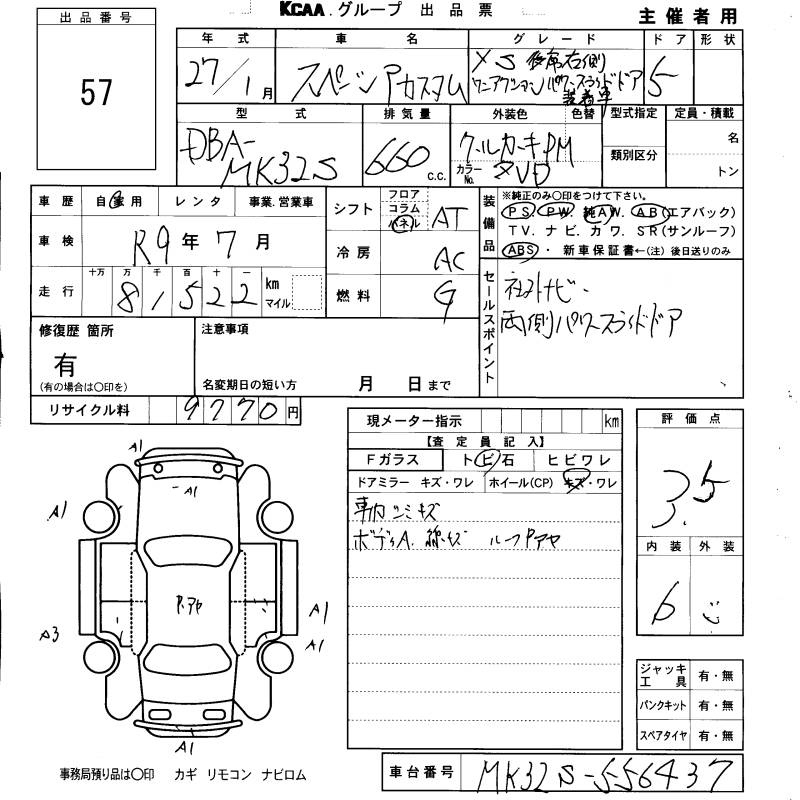 KCAA.グループ 出品票
主催者用
出品番号
57
年式 車名 グレード ドア 形状
27/1月 スペーシアカスタム XS 後席右側
ワンアクションパワースライドドア
装着車
5
型式 排気量 外装色 色替 型式指定 定員・積載
DBA-
MK32S
660 C.C.
クールカーキPM
カラーNo. ZVD
類別区分
名
トン
車歴 自家用 レンタ 事業.営業車
車検 R9年7月
走行 十万 万 千 百 十 一
81522 km
マイル
シフト フロア
コラム
パネル
AT
冷房 AC
燃料 G
装備品
※純正のみ〇印をつけて下さい。
PS. PW. 純AW. AB(エアバック)
TV. ナビ. カワ. SR(サンルーフ)
ABS・ 新車保証書←(注) 後日送りのみ
セールスポイント
社外ナビ
両側パワースライドドア
修復歴 箇所
有
(有の場合は〇印を)
注意事項
名変期日の短い方 月 日まで
リサイクル料 9770円
現メーター指示 km
【査定員記入】
Fガラス トビ石 ヒビワレ
ドアミラー キズ・ワレ ホイール(CP) キズ・ワレ
車内シミキズ
ボディA. 線キズ ルーフPアヤ
評価点
3.5
内装 外装
6
ジャッキ
工具 有・無
パンクキット 有・無
スペアタイヤ 有・無
A1
A1
A1
P.アヤ
A1
A3
A1
A1
事務局預り品は〇印 カギ リモコン ナビロム
車台番号 MK32S-556437